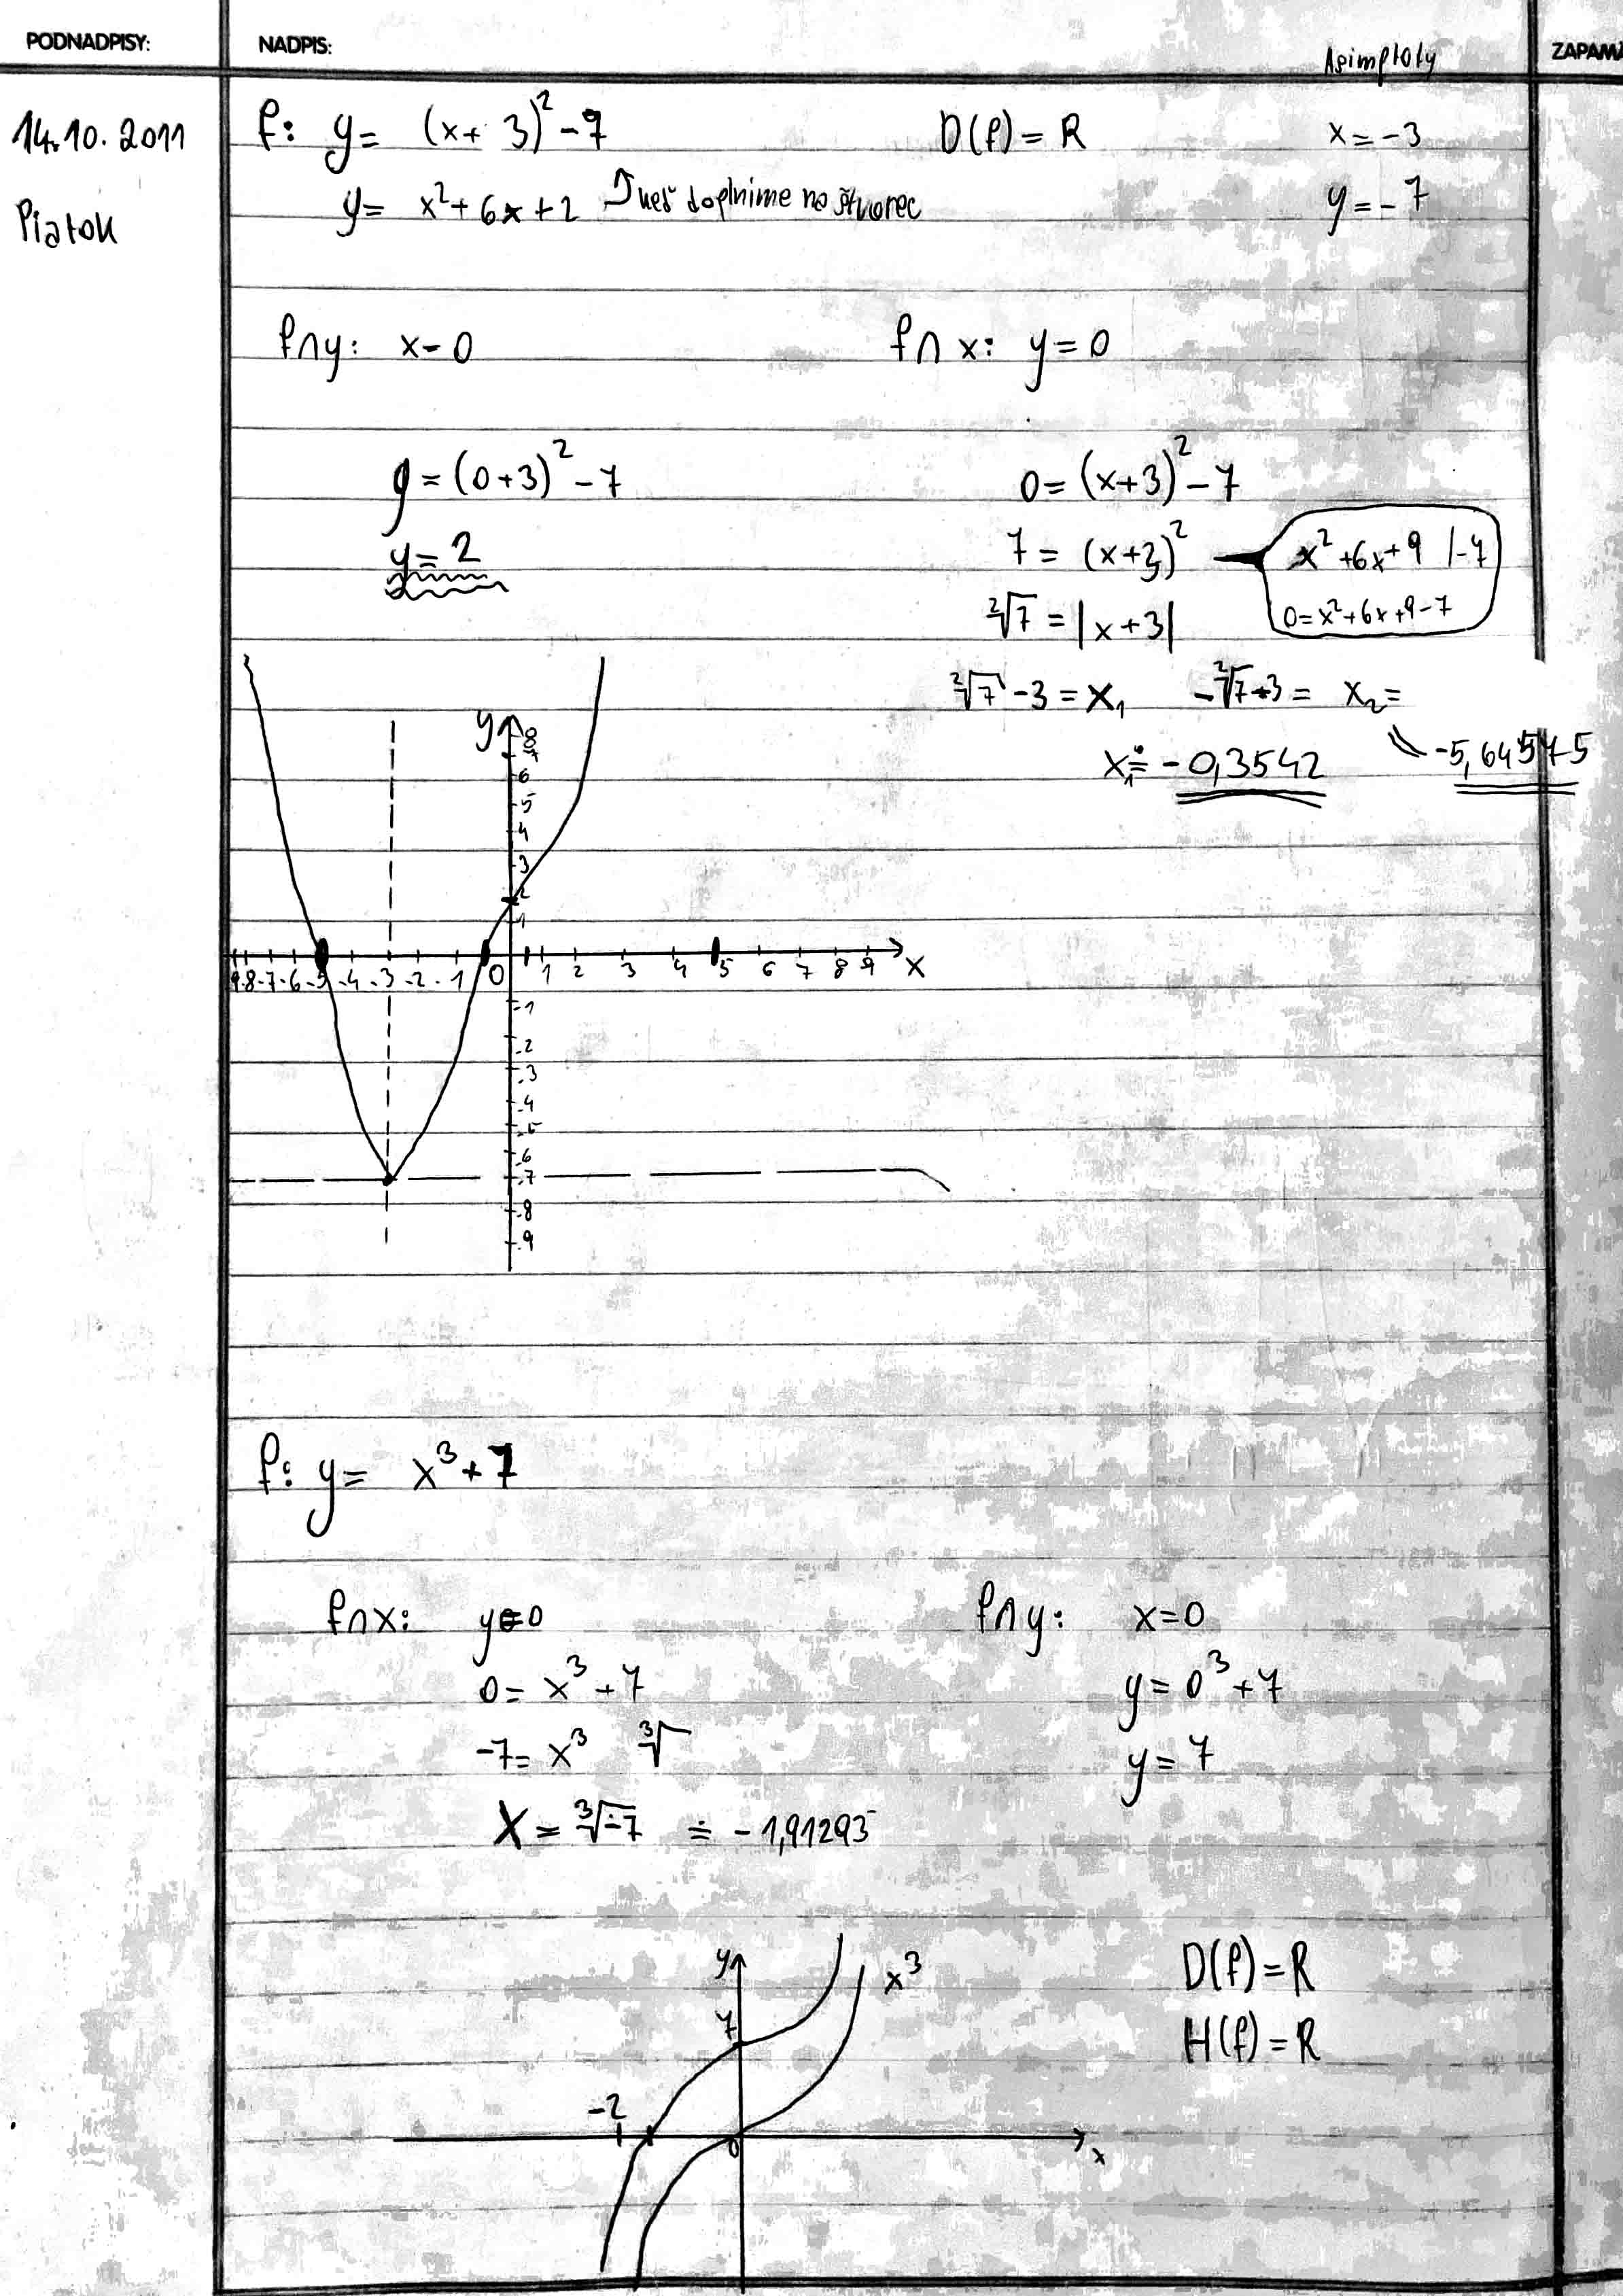 PODNADPISY: NADPIS: Asimptoty ZAPAMÄ
14.10.2011 f: y = (x + 3)² - 7 D(f) = R x = -3
Piatok y = x² + 6x + 2 doplníme na štvorec y = -7
f∩y: x - 0 f∩x: y = 0
y = (0+3)² - 7 0 = (x+3)² - 7
y = 2 7 = (x+3)² x² + 6x + 9 /-7
²√7 = |x+3| 0 = x² + 6x + 9 - 7
²√7 - 3 = x₁ -²√7 - 3 = x₂ =
x₁ ≐ -0,3542 -5,64575
y
8
7
6
5
4
3
2
1
-9 -8 -7 -6 -5 -4 -3 -2 -1 0 1 2 3 4 5 6 7 8 9 x
-1
-2
-3
-4
-5
-6
-7
-8
-9
f: y = x³ + 7
f∩x: y = 0 f∩y: x = 0
0 = x³ + 7 y = 0³ + 7
-7 = x³ ³√ y = 7
x = ³√-7 ≐ -1,91293
y x³ D(f) = R
7 H(f) = R
-2 0 x